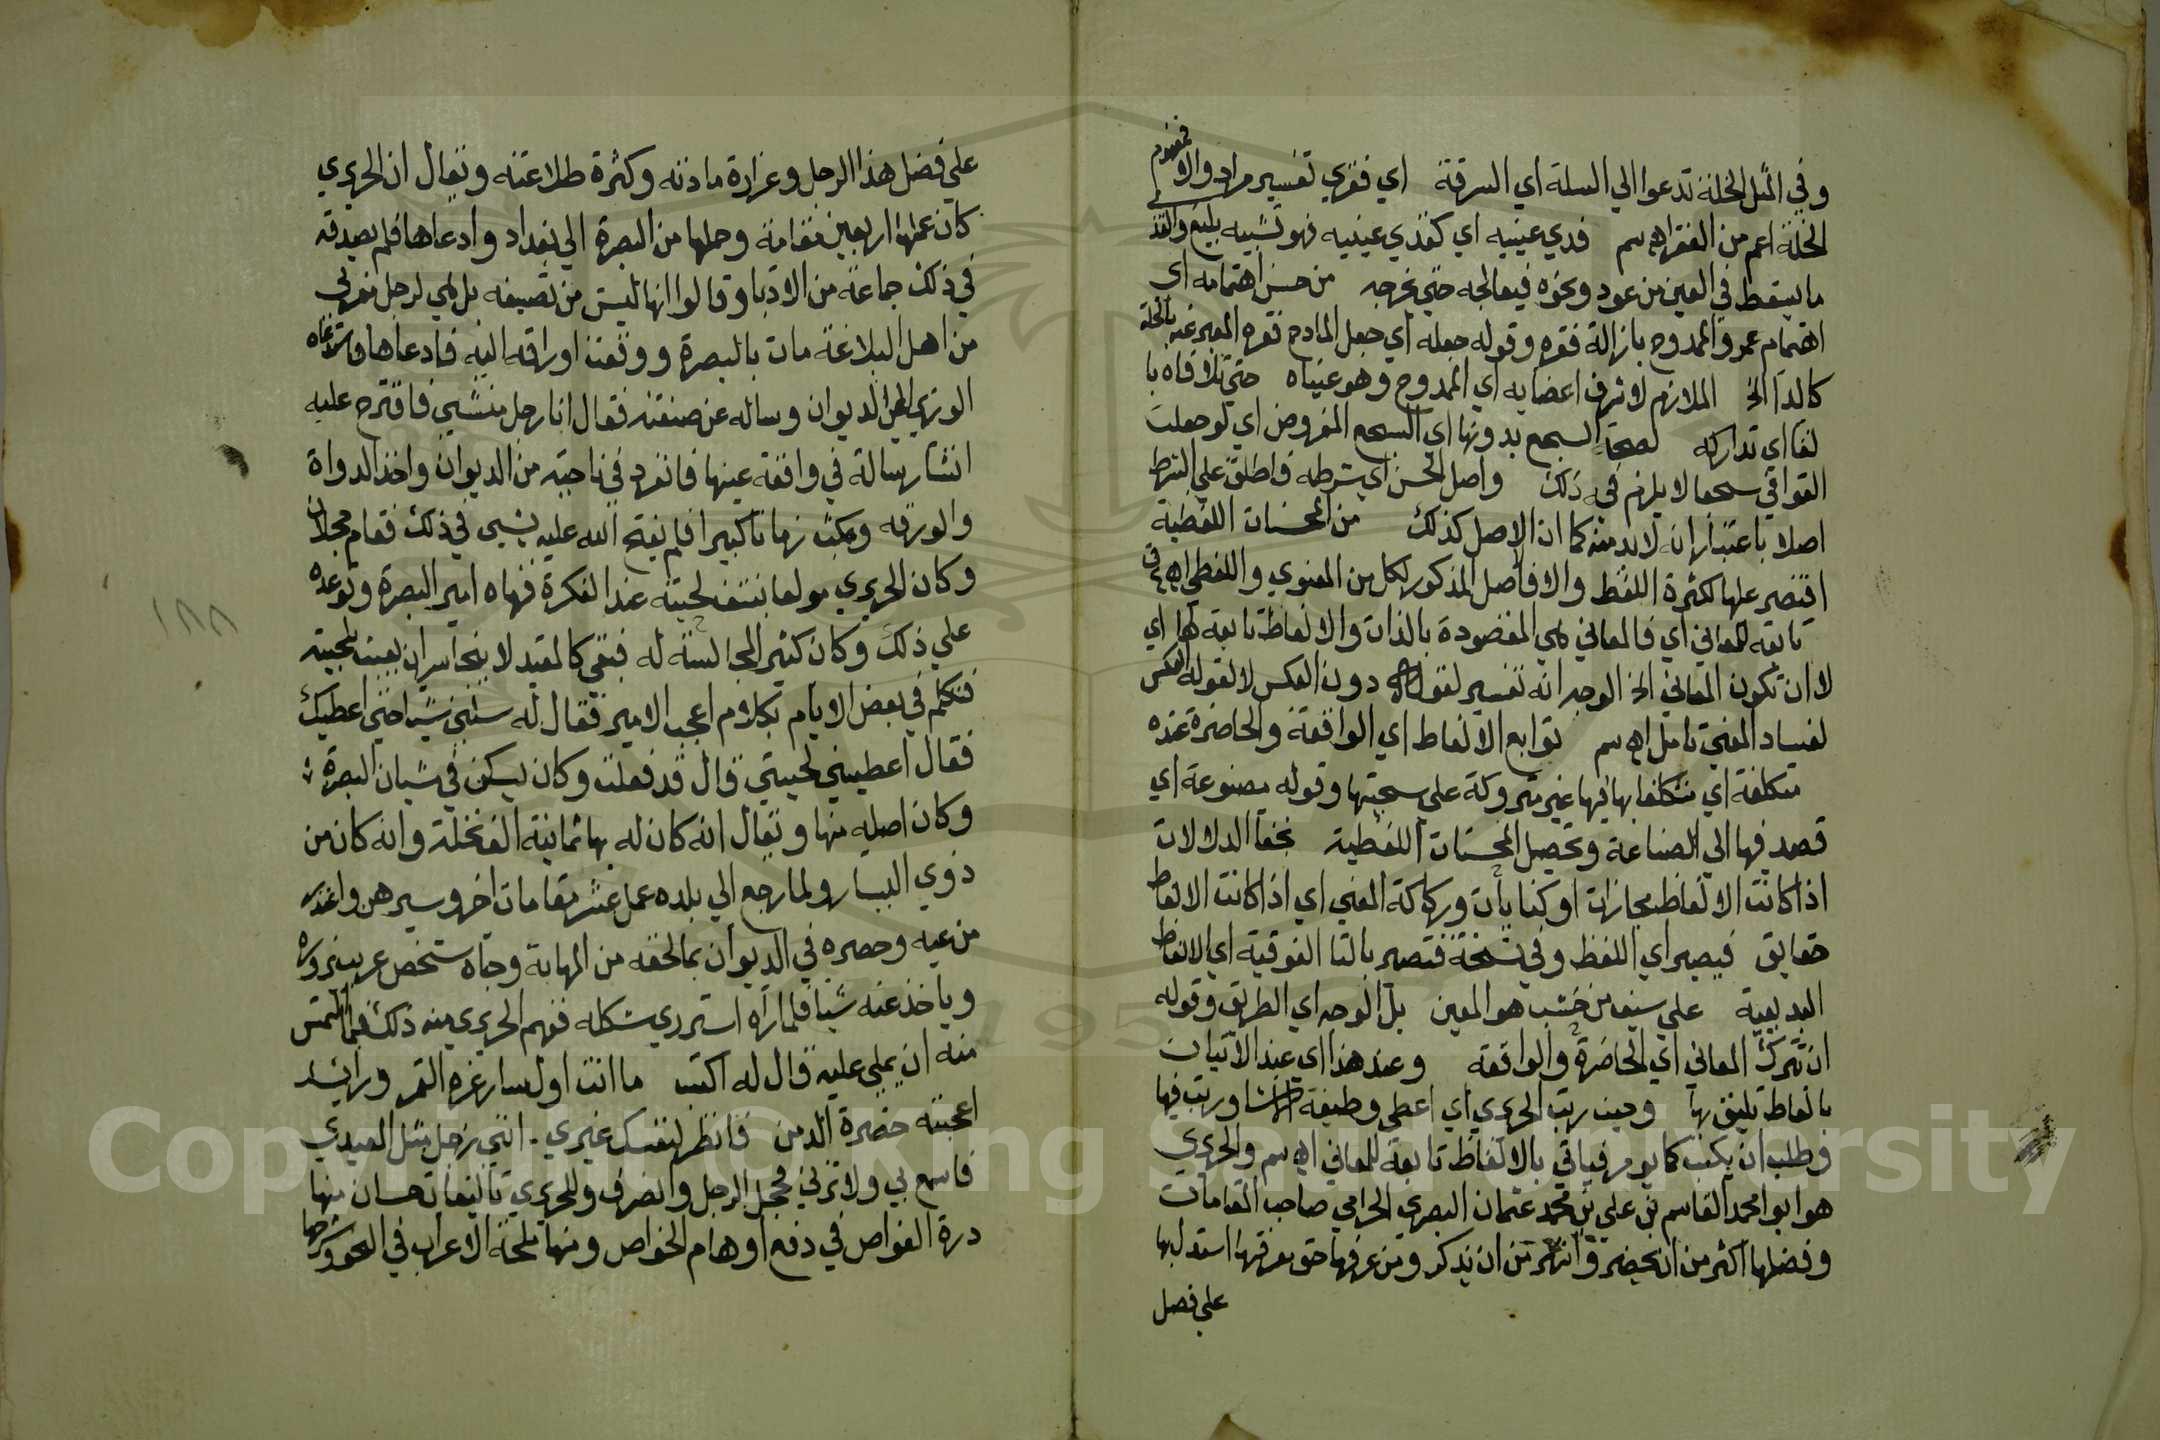 وفي المثل الخلة تدعوا الي السلة اي السرقة اي فقري تفسير مراد والا فمفهوم
الخلة اعم من الفقر اهـ سم قدي عينيه اي كقذي عينيه فهو تشبيه بليغ والقذي
ما يسقط في العين من عود ونحوه فيعالجه حتي يخرجه من حسن اهتمامه اي
اهتمام عمرو الممدوح بازالة فقره وقوله جعله اي جعل المادح فقره المعبر عنه بالخلة
كالدا الخ الملازم لاشرف اعضايه اي الممدوح وهو عيناه حتي تلافاه با
لفا اي تداركه لصحة السجع بدونها اي السجع المفروض اي لو جعلت
القوافي سجعا لا يلزم فيه ذلك واصل الحسن اي شرطه فاطلق علي الشرط
اصلا باعتبار انه لابد منه كما ان الاصل كذلك من المحسنات اللفظية
اقتصر عليها لكثرة اللفظ والا فاصل المذكور لكل من المعنوي واللفظي اهـ
تابعة للمعاني اي فالمعاني هي المقصودة بالذات والالفاظ تابعة لها اي
لا ان تكون المعاني الخ الوجه انه تفسير لقوله دون العكس لا لقوله العكس
لفساد المعني تامل اهـ سم توابع الالفاظ اي الواقعة والحاضرة عنده
متكلفة اي متكلفا بها فيها غير متروكة علي سجيتها وقوله مصنوعة اي
قصد فيها الي الصناعة وتحصيل المحسنات اللفظية بخفا الدلالات
اذا كانت الالفاظ مجازات او كنايات وركاكة المعني اي اذا كانت الالفاظ
حقايق فيصير اي اللفظ وفي نسخة فتصير بالتا الفوقية اي الالفاظ
البديعية علي سيف من خشب هو المعين بل الوجه اي الطريق وقوله
ان تترك المعاني اي الحاضرة والواقعة وعند هذا اي عند الاتيان
بالفاظ تليق بها وحين رتب الحريري اي اعطي وظيفة الانشا ورتب فيها
وطلب ان يكتب كما يومر فياتي بالالفاظ تابعة للمعاني اهـ سم والحريري
هو ابو محمد القاسم بن علي بن محمد عثمان البصري الحرامي صاحب المقامات
وفضلها اكثر من ان يحصر واشهر من ان يذكر ومن عرفها حق معرفتها استدل بها
علي فضل
علي فضل هذا الرجل وغزارة مادته وكثرة طلاعته ويقال ان الحريري
كان عملها اربعين مقامة وحملها من البصرة الي بغداد وادعاها فلم يصدقه
في ذلك جماعة من الادبا وقالوا انها ليست من تصنيفه بل هي لرجل مغربي
من اهل البلاغة مات بالبصرة ووقعت اوراقه اليه فادعاها فاستدعاه
الوزير الي الديوان وساله عن صنعته فقال انا رجل منشي فاقترح عليه
انشا رسالة في واقعة عينها فانفرد في ناحية من الديوان واخذ الدواة
والورقه ومكث زمانا كبيرا فلم يفتح الله عليه بشي في ذلك فقام خجلان
وكان الحريري مولعا بنتف لحيته عند الفكرة فنهاه امير البصرة وتوعده
علي ذلك وكان كثير المجالسة له فبقي كالمقيد لا يتجاسر ان يعبث بلحيته
فتكلم في بعض الايام بكلام اعجب الامير فقال له سلني شيا حتي اعطيك
فقال اعطيني لحيتي قال قد فعلت وكان يسكن في مشان البصرة
وكان اصله منها ويقال انه كان له بها ثمانية الف نخلة وانه كان من
ذوي اليسار ولما رجع الي بلده عمل عشر مقامات اخر وسيرهن واعتذر
من عيه وحصره في الديوان بما لحقه من المهابة وجاه شخص غريب يزوره
وياخذ عنه شيا فلما رآه استزري شكله ففهم الحريري منه ذلك فلما التمس
منه ان يملي عليه قال له اكتب ما انت اول سار غره القمر ورائد
اعجبته خضرة الدمن فانظر لنفسك غيري انني رجل مثل المعيدي
فاسمع بي ولا ترني فخجل الرجل وانصرف وللحريري تاليفات حسان منها
درة الغواص في دفع اوهام الخواص ومنها ملحة الاعراب في النحو وشرحها
١٨٨
Copyright © King Saud University
1957